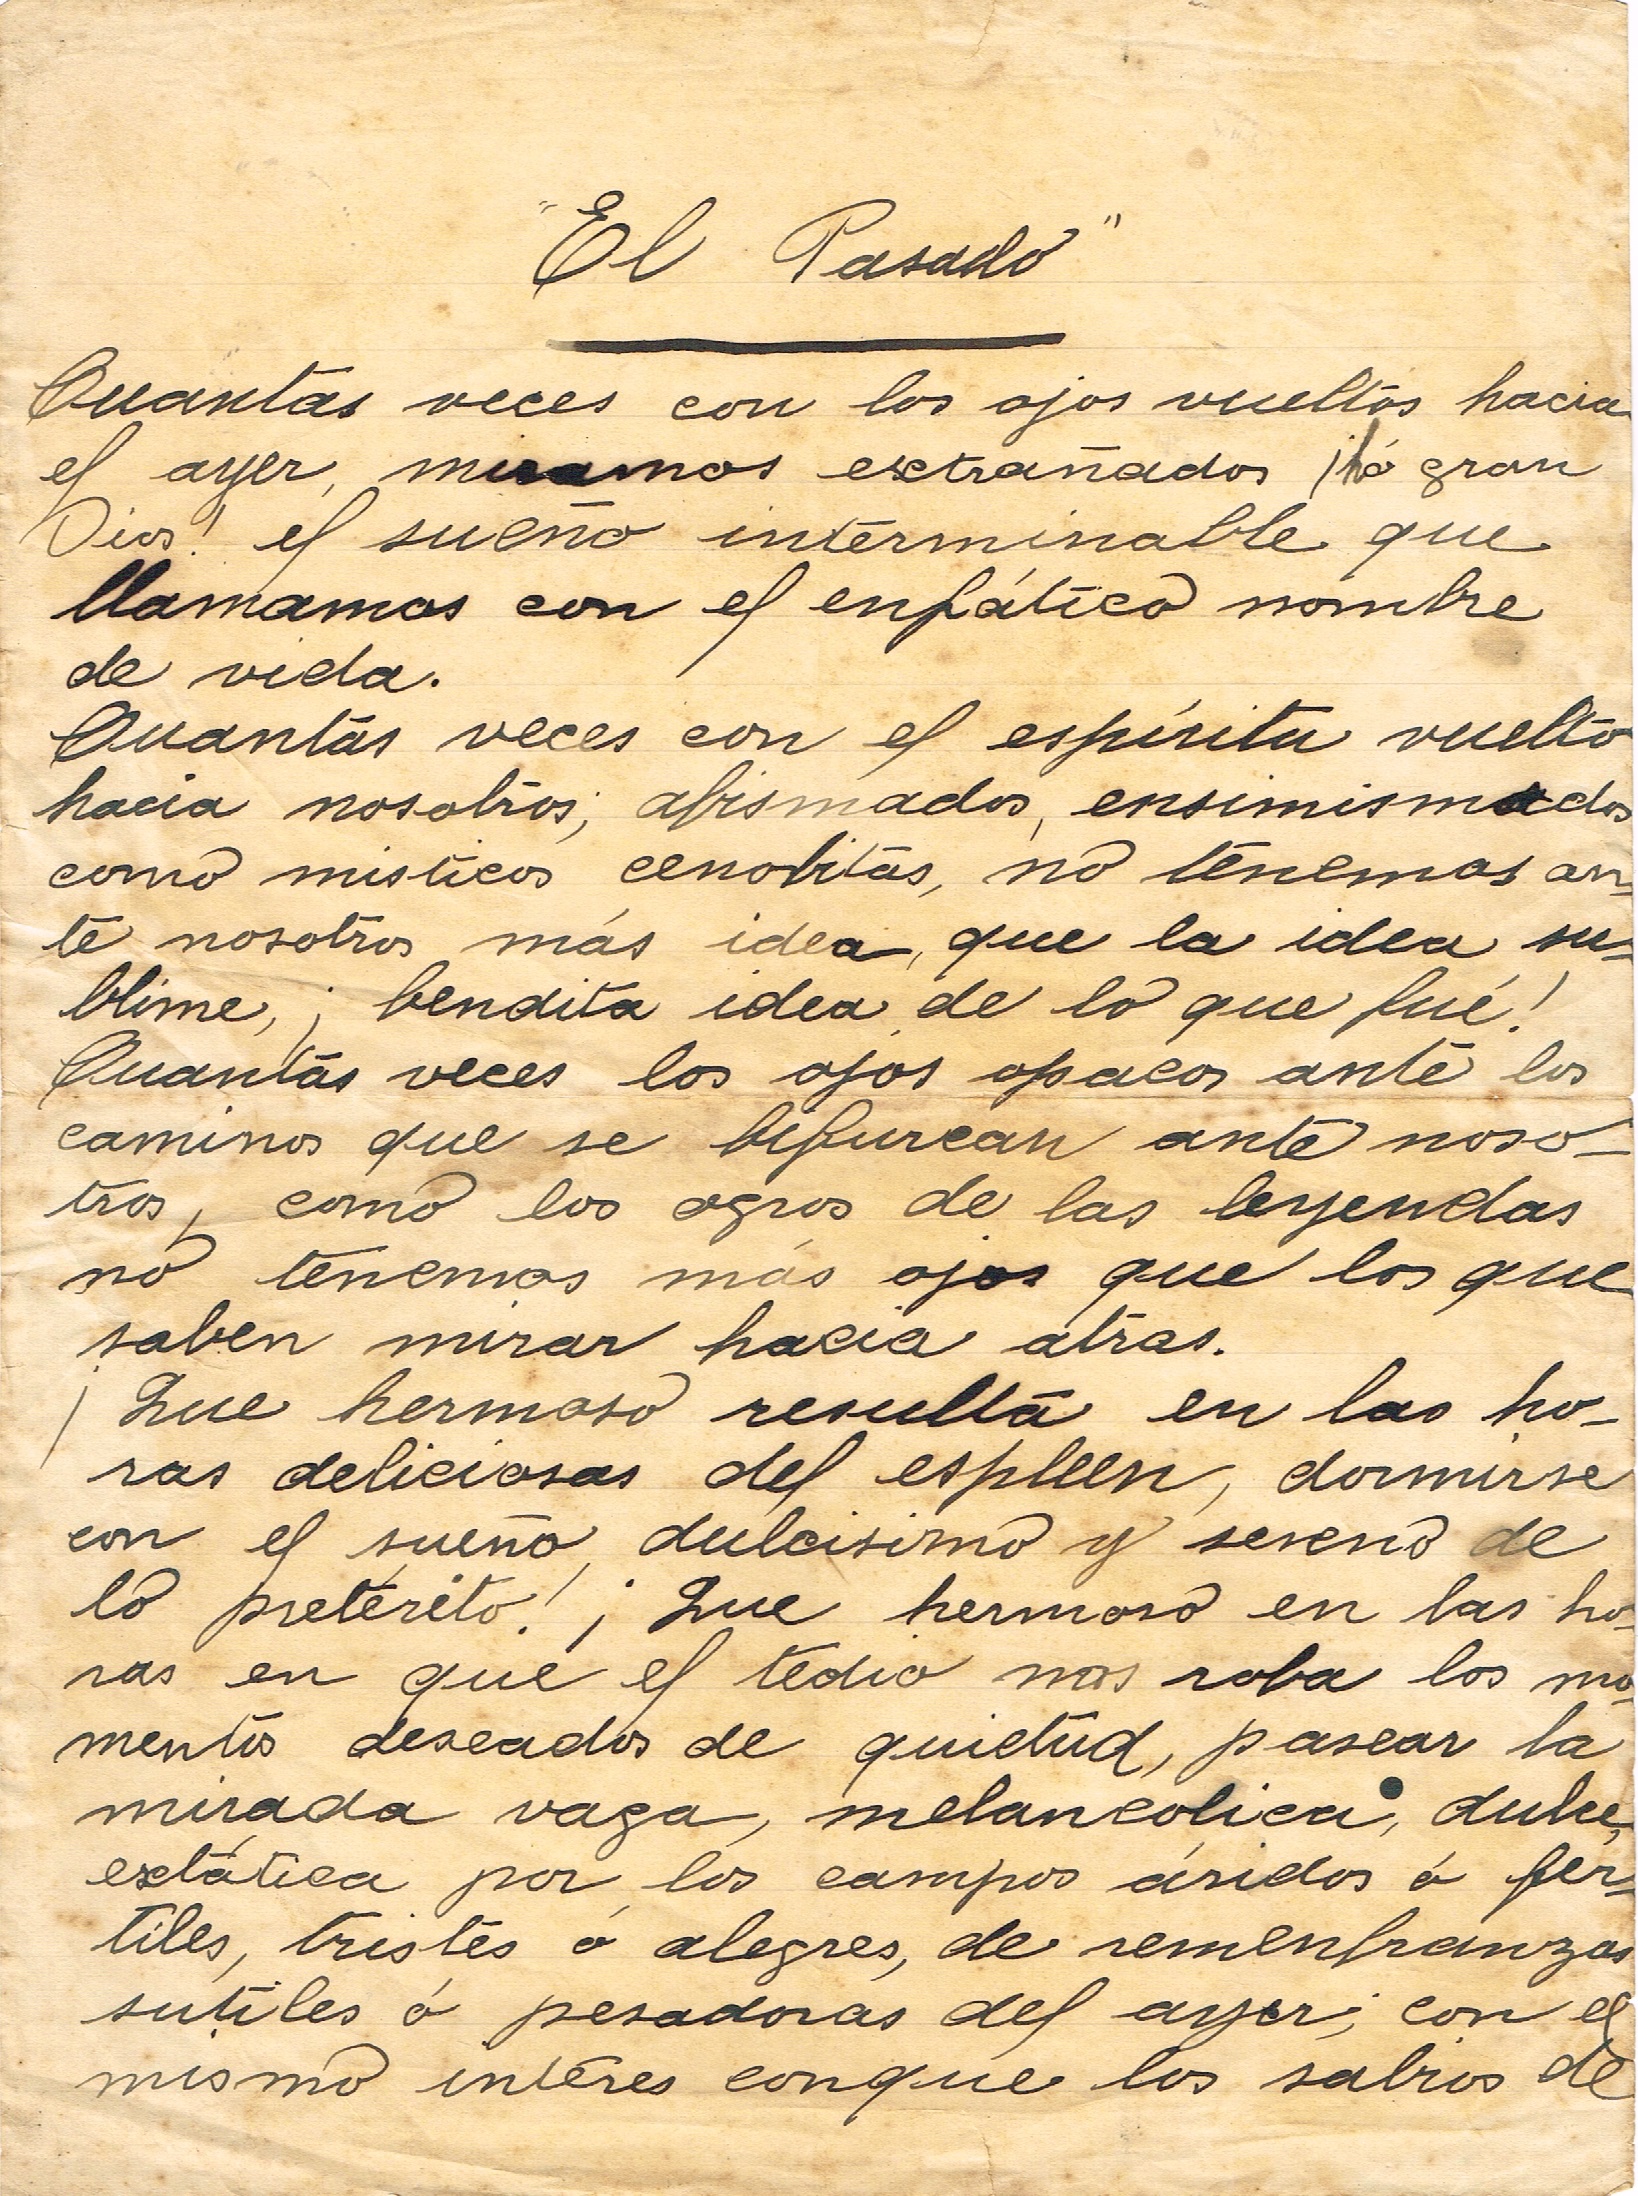 "El Pasado"
Cuantas veces con los ojos vueltos hacia
el ayer, miramos extrañados ¡hó gran
Dios! el sueño interminable que
llamamos con el enfático nombre
de vida.
Cuantas veces con el espíritu vuelto
hacia nosotros; abismados, ensimismados
como misticos cenobitas, no tenemos an-
te nosotros más idea, que la idea su-
blime, ¡bendita idea de lo que fué!
Cuantas veces los ojos opacos ante los
caminos que se bifurcan ante noso-
tros, como los ogros de las leyendas
no tenemos más ojos que los que
saben mirar hacia atras.
¡Que hermoso resulta en las ho-
ras deliciosas del espleen, dormirse
con el sueño, dulcisimo y sereno de
lo pretérito! ¡Que hermoso en las ho-
ras en que el tedio nos roba los mo-
mentos deseados de quietud, pasear la
mirada vaga, melancolica, dulce,
extática por los campos áridos ó fer-
tiles, tristes ó alegres, de remenfranzas
sutiles ó pesadoras del ayer; con el
mismo interes conque los sabios de